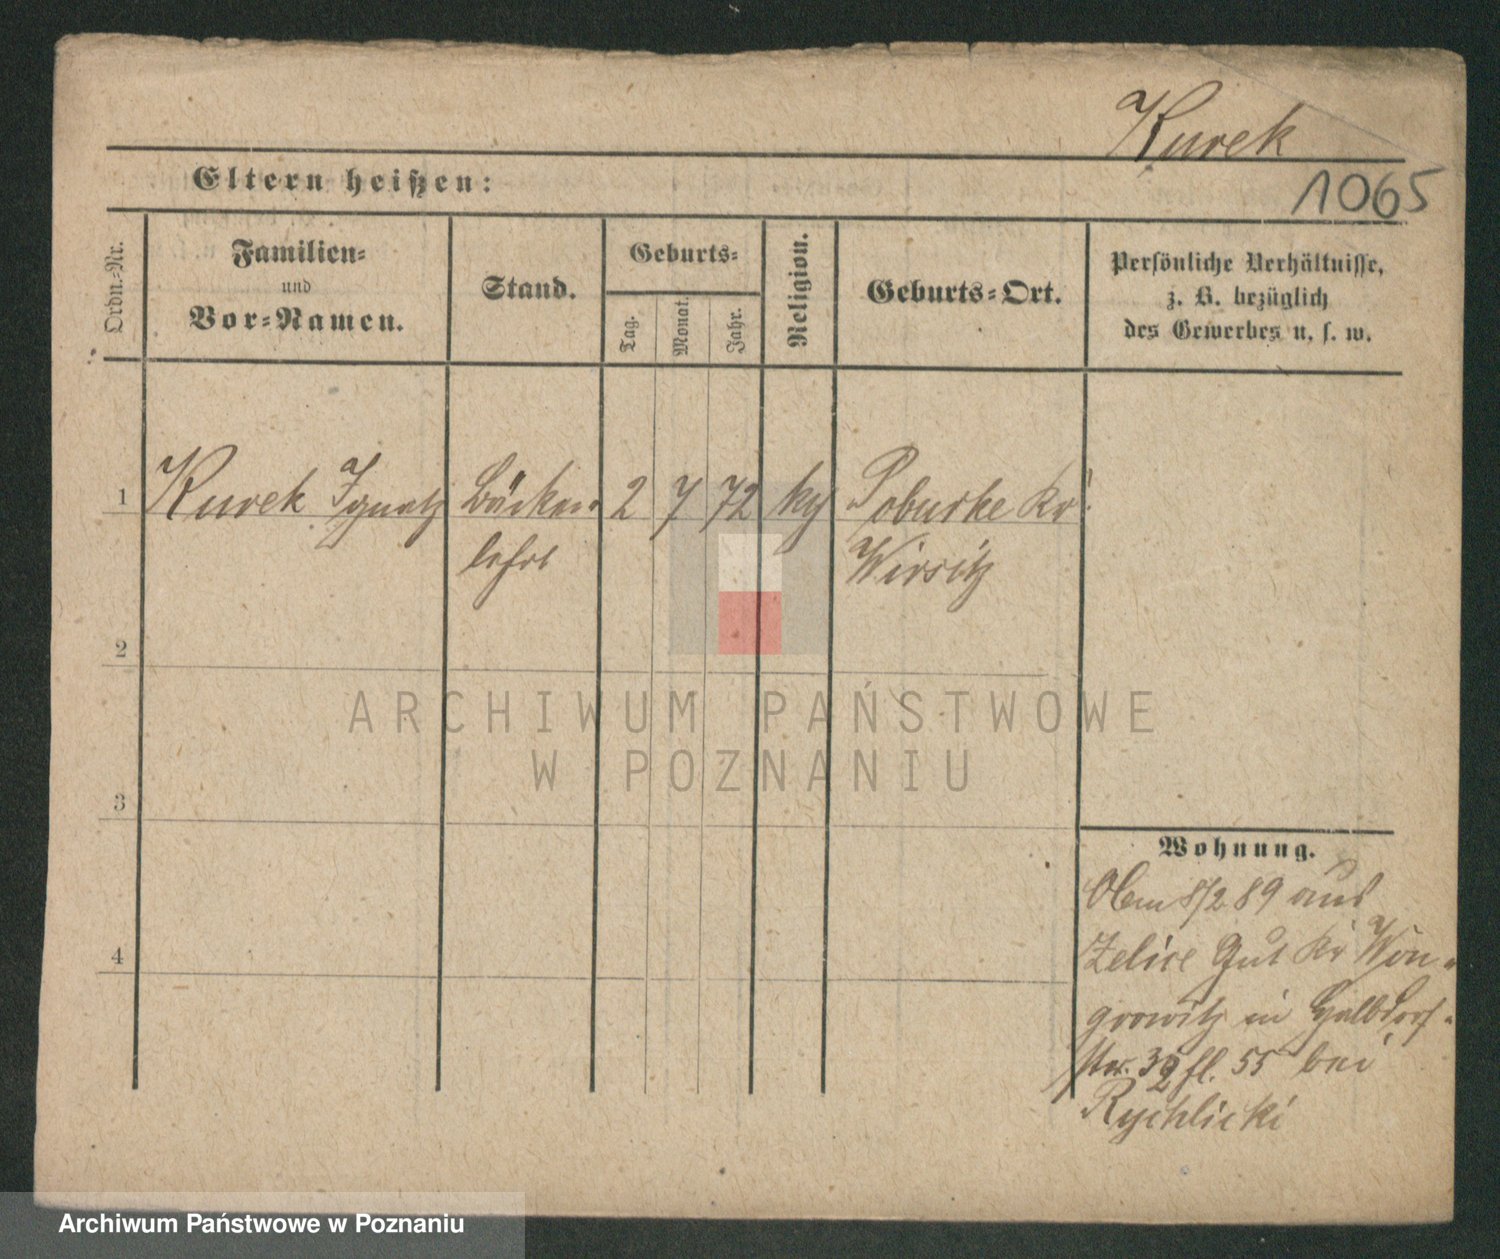 Kurek
1065
Eltern heißen:
Ordn.=Nr.
Familien=
und
Vor=Namen.
Stand.
Geburts=
Tag.
Monat.
Jahr.
Religion.
Geburts=Ort.
Persönliche Verhältnisse,
z. B. bezüglich
des Gewerbes u. s. w.
1 Kurek Ignatz Bäcker= 2 7 72 Poburke Kr
lehrl Wirsitz
2
3
4
Wohnung.
8/2 89 aus
Zelice Gut Kr Won=
growitz in Halbdorf=
str. 55 bei
Rychlicki
ARCHIWUM PAŃSTWOWE
W POZNANIU
Archiwum Państwowe w Poznaniu